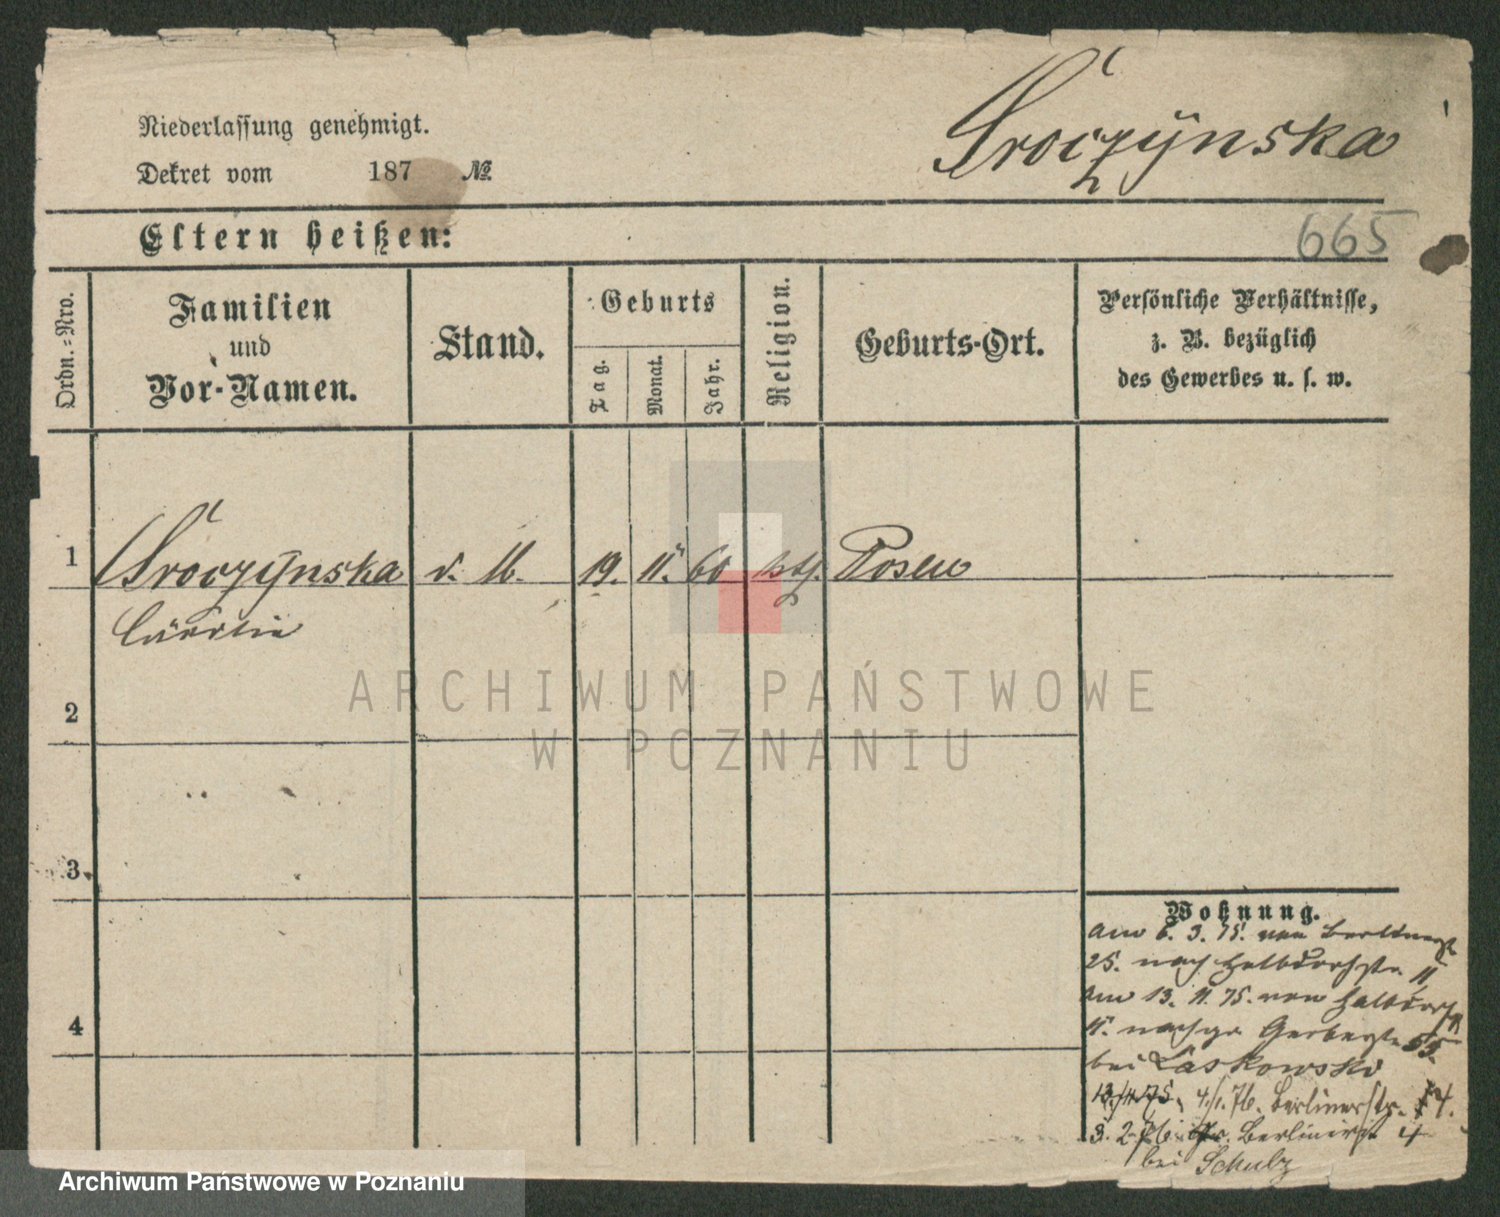 Niederlassung genehmigt.
Dekret vom 187 №
Sroczynska
Eltern heißen:
665
Ordn.-Nro.
Familien
und
Vor-Namen.
Stand.
Geburts
Tag.
Monat.
Jahr.
Religion.
Geburts-Ort.
Persönliche Verhältnisse,
z. B. bezüglich
des Gewerbes u. s. w.
1 Sroczynska d. M. 19. 11. 60 ktl. Posen
2
3
4
Wohnung.
am 6. 3. 75. von Berlinerstr
25. nach Halbdorfstr. 11
am 13. 11. 75. von Halbdorfstr
11. nach Gerberstr 55.
bei Laskowski
13/11 75. 4/1. 76. Berlinerstr. 4.
3. 2. 76 Berlinerst 4
bei Schulz
ARCHIWUM PAŃSTWOWE
W POZNANIU
Archiwum Państwowe w Poznaniu